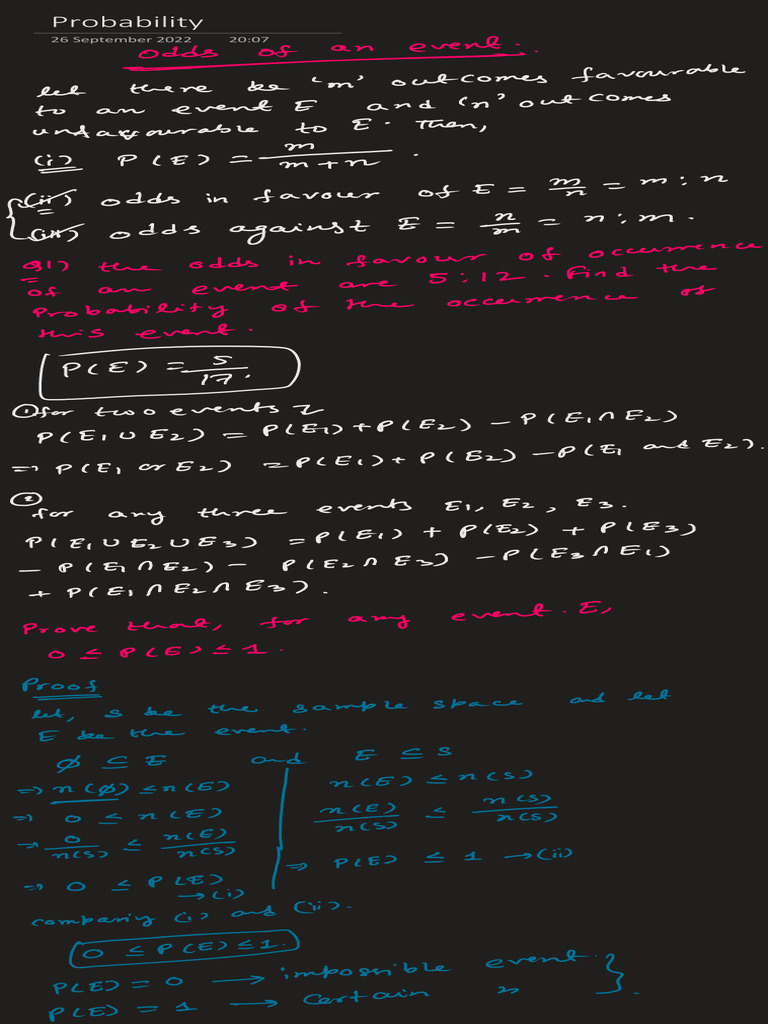 Probability
26 September 2022 20:07
Odds of an event.
let there be 'm' outcomes favourable
to an event E and 'n' outcomes
unfavourable to E. Then,
(i) P(E) = m/(m+n).
(ii) odds in favour of E = m/n = m:n
(iii) odds against E = n/m = n:m.
Q1) the odds in favour of occurrence
of an event are 5:12. Find the
probability of the occurrence of
this event.
P(E) = 5/17.
① for two events
P(E1 ∪ E2) = P(E1) + P(E2) − P(E1 ∩ E2)
⇒ P(E1 or E2) = P(E1) + P(E2) − P(E1 and E2).
②
for any three events E1, E2, E3.
P(E1 ∪ E2 ∪ E3) = P(E1) + P(E2) + P(E3)
− P(E1 ∩ E2) − P(E2 ∩ E3) − P(E3 ∩ E1)
+ P(E1 ∩ E2 ∩ E3).
Prove that, for any event E,
0 ≤ P(E) ≤ 1.
Proof
let, S be the sample space and let
E be the event.
ϕ ⊆ E and E ⊆ S
⇒ n(ϕ) ≤ n(E) n(E) ≤ n(S)
⇒ 0 ≤ n(E) n(E)/n(S) ≤ n(S)/n(S)
⇒ 0/n(S) ≤ n(E)/n(S) ⇒ P(E) ≤ 1 → (ii)
⇒ 0 ≤ P(E)
→ (i)
comparing (i) and (ii).
0 ≤ P(E) ≤ 1.
P(E) = 0 → impossible event
P(E) = 1 → Certain "